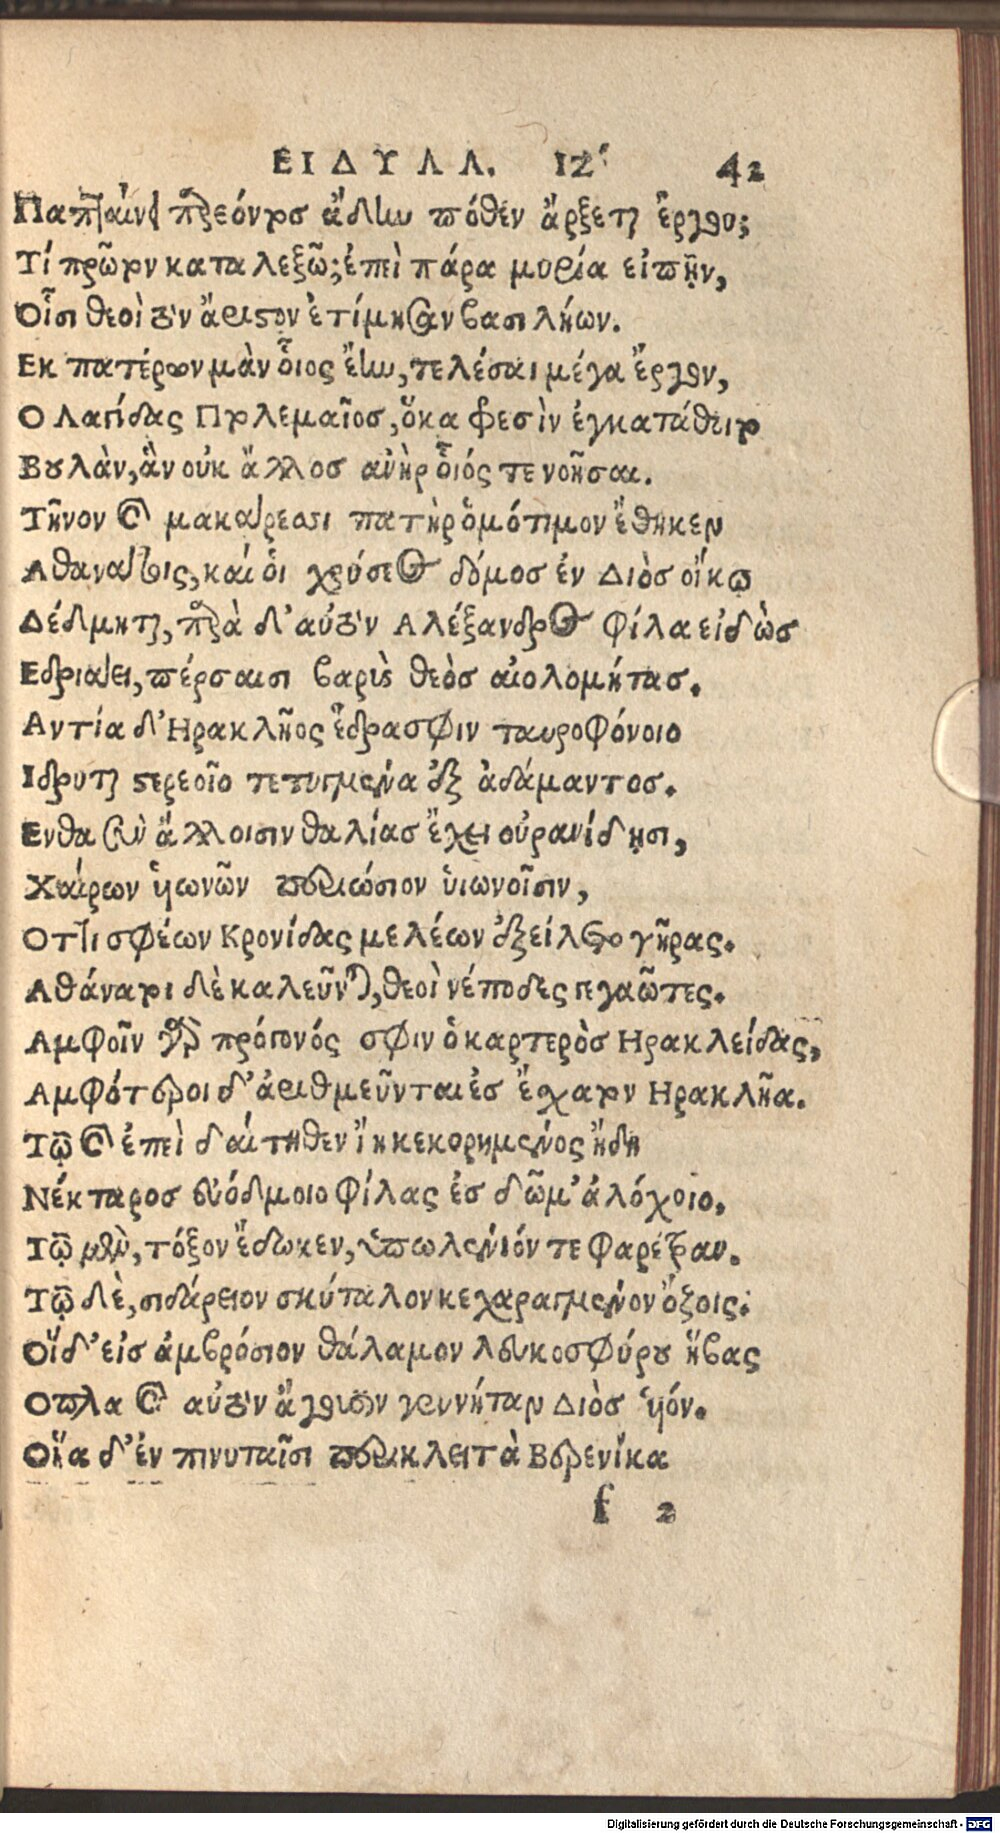 ΕΙΔΥΛΛ. ΙΖ´ 42
Παπταίνει παρεόντος ἄδην πόθεν ἄρξεται ἔργου;
Τί πρῶτον καταλεξῶ; ἐπεὶ πάρα μυρία εἰπῆν,
Οἷσι θεοὶ τὸν ἄριστον ἐτίμησαν βασιλήων.
Εκ πατέρων μὰν οἷος ἔην, τελέσαι μέγα ἔργον,
Ο Λαγίδας Πτολεμαῖος, ὅκα φρεσὶν ἐγκατάθοιτο
Βουλὰν, ἃν οὐκ ἄλλος ἀνὴρ οἷός τε νοῆσαι.
Τῆνον καὶ μακάρεσσι πατὴρ ὁμότιμον ἔθηκεν
Αθανάτοις, καί οἱ χρύσεος δόμος ἐν Διὸς οἴκῳ
Δέδμηται, παρὰ δ' αὐτὸν Αλέξανδρος φίλα εἰδὼς
Εδριάει, πέρσαισι βαρὺς θεὸς αἰολομήτας.
Αντία δ' Ηρακλῆος ἕδρα σφιν ταυροφόνοιο
Ιδρυται στερεοῖο τετυγμένα ἐξ ἀδάμαντος.
Ενθα σὺν ἄλλοισιν θαλίας ἔχει οὐρανίδῃσι,
Χαίρων υἱωνῶν περιώσιον υἱωνοῖσιν,
Οττι σφέων Κρονίδας μελέων ἐξείλετο γῆρας.
Αθάνατοι δὲ καλεῦνται, θεοὶ νέποδες γεγαῶτες.
Αμφοῖν γὰρ πρόγονός σφιν ὁ καρτερὸς Ηρακλείδας,
Αμφότεροι δ' ἀριθμεῦνται ἐς ἔσχατον Ηρακλῆα.
Τῷ καὶ ἐπεὶ δαίτηθεν ἴῃ κεκορημένος ἤδη
Νέκταρος εὐόδμοιο φίλας ἐς δῶμ' ἀλόχοιο,
Τῷ μὲν, τόξον ἔδωκεν, ὑπωλένιόν τε φαρέτραν.
Τῷ δὲ, σιδάρειον σκύταλον κεχαραγμένον ὄζοις.
Οἵ δ' εἰς ἀμβρόσιον θάλαμον λευκοσφύρου ἥβας
Οπλα καὶ αὐτὸν ἄγουσιν γενηήταν Διὸς υἱόν.
Οἵα δ' ἐν πινυταῖσι περικλειτὰ Βερενίκα
f 2
Digitalisierung gefördert durch die Deutsche Forschungsgemeinschaft - DFG